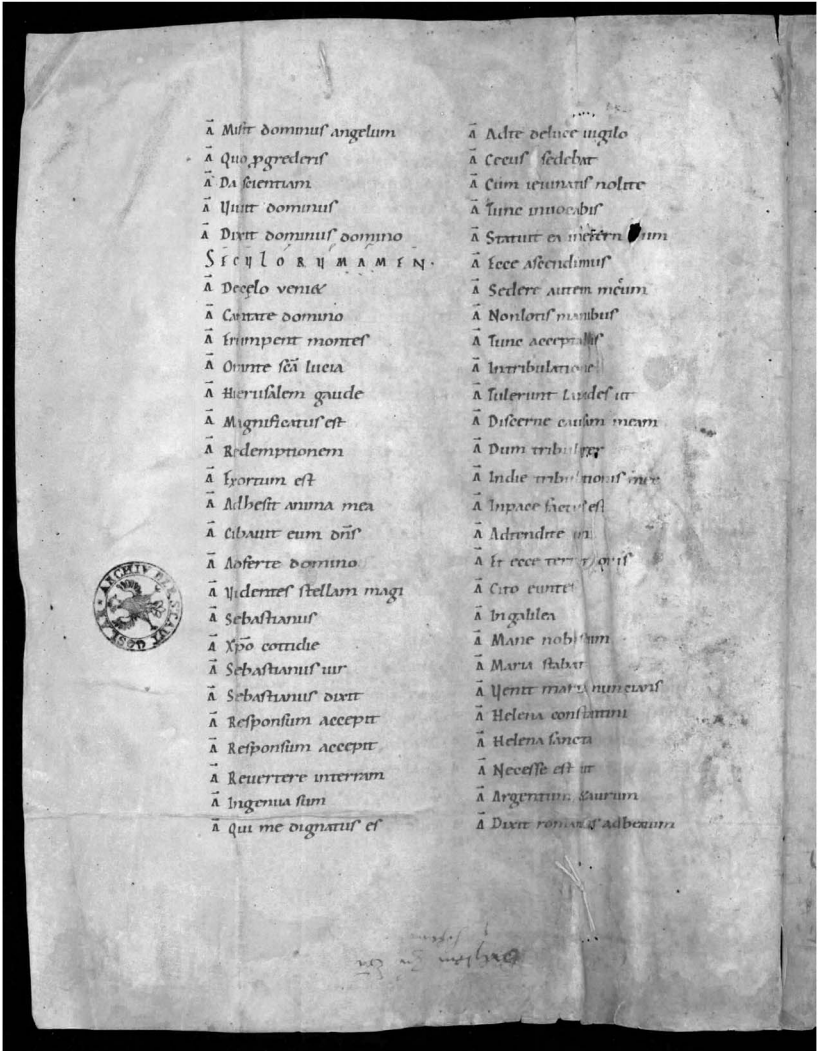 Ā Misit dominus angelum
Ā Quo ꝓgrederis
Ā Da scientiam
Ā Uiuit dominus
Ā Dixit dominus domino
SECULORUMAMEN.
Ā Decelo veniet
Ā Cantate domino
Ā Erumpent montes
Ā Orante scā lucia
Ā Hierusalem gaude
Ā Magnificatus est
Ā Redemptionem
Ā Exortum est
Ā Adhesit anima mea
Ā Cibauit eum dn̄s
Ā Adferte domino
Ā Uidentes stellam magi
Ā Sebastianus
Ā Xp̄o cottidie
Ā Sebastianus uir
Ā Sebastianus dixit
Ā Responsum accepit
Ā Responsum accepit
Ā Reuertere interram
Ā Ingenua sum
Ā Qui me dignatus es
Ā Adte deluce uigilo
Ā Cecus sedebat
Ā Cum ieiunatis nolite
Ā Tunc inuocabis
Ā Statuit ea
Ā Ecce ascendimus
Ā Sedere autem mecum
Ā Nonlotis manibus
Ā Tunc acceptabis
Ā Intribulatione
Ā Tulerunt lapides ut
Ā Discerne causam meam
Ā Dum tribularer
Ā Indie tribulationis mee
Ā Inpace factus est
Ā Adtendite
Ā Et ecce terre
Ā Cito euntes
Ā Ingalilea
Ā Mane nobiscum
Ā Maria stabat
Ā Uenit maria nuncians
Ā Helena constantini
Ā Helena sancta
Ā Necesse est ut
Ā Argentum
Ā Dixit romanus
ARCHIV DER STADT GOSLAR